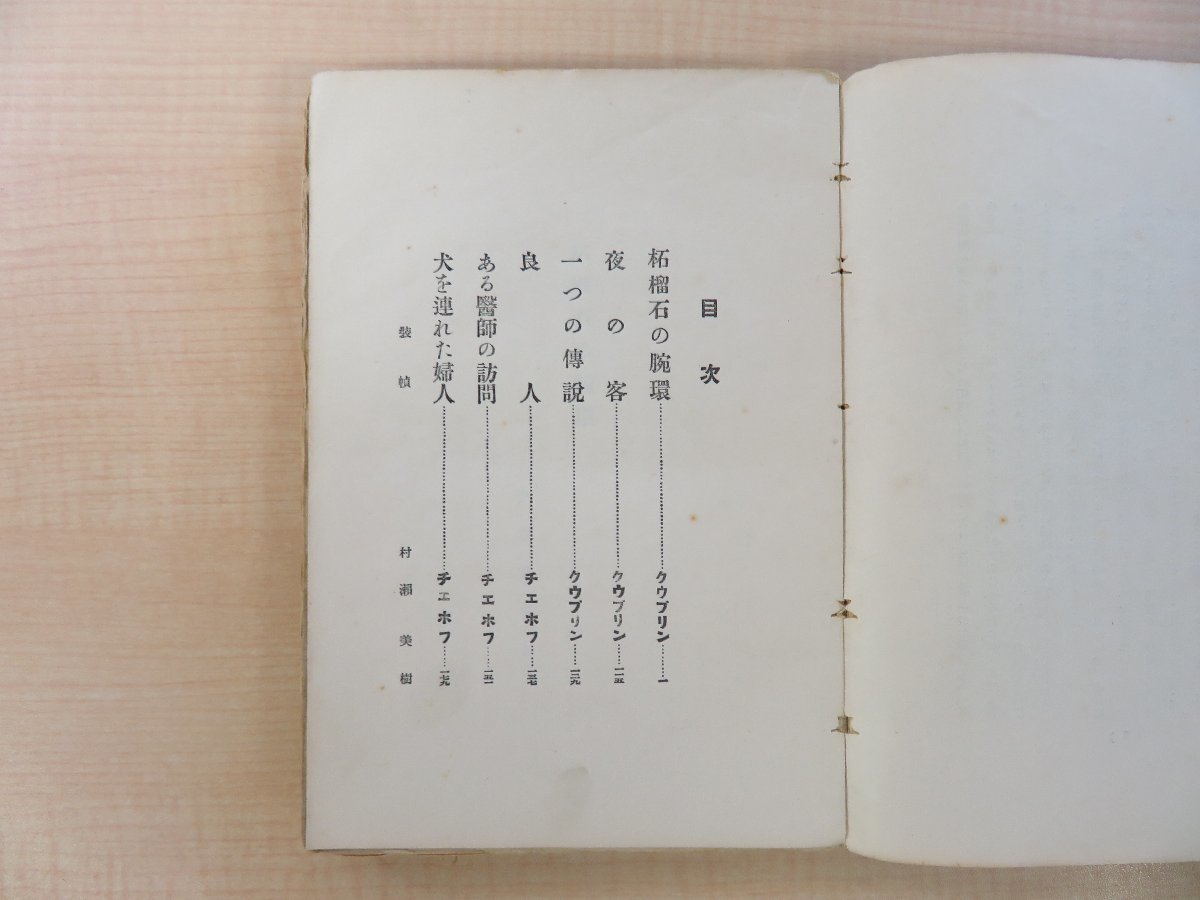 目次
柘榴石の腕環……クウプリン……一
夜の客……クウプリン……一一五
一つの傳說……クウプリン……一二九
良人……チエホフ……一三七
ある醫師の訪問……チエホフ……一五一
犬を連れた婦人……チエホフ……一七九
裝幀 村瀨美樹